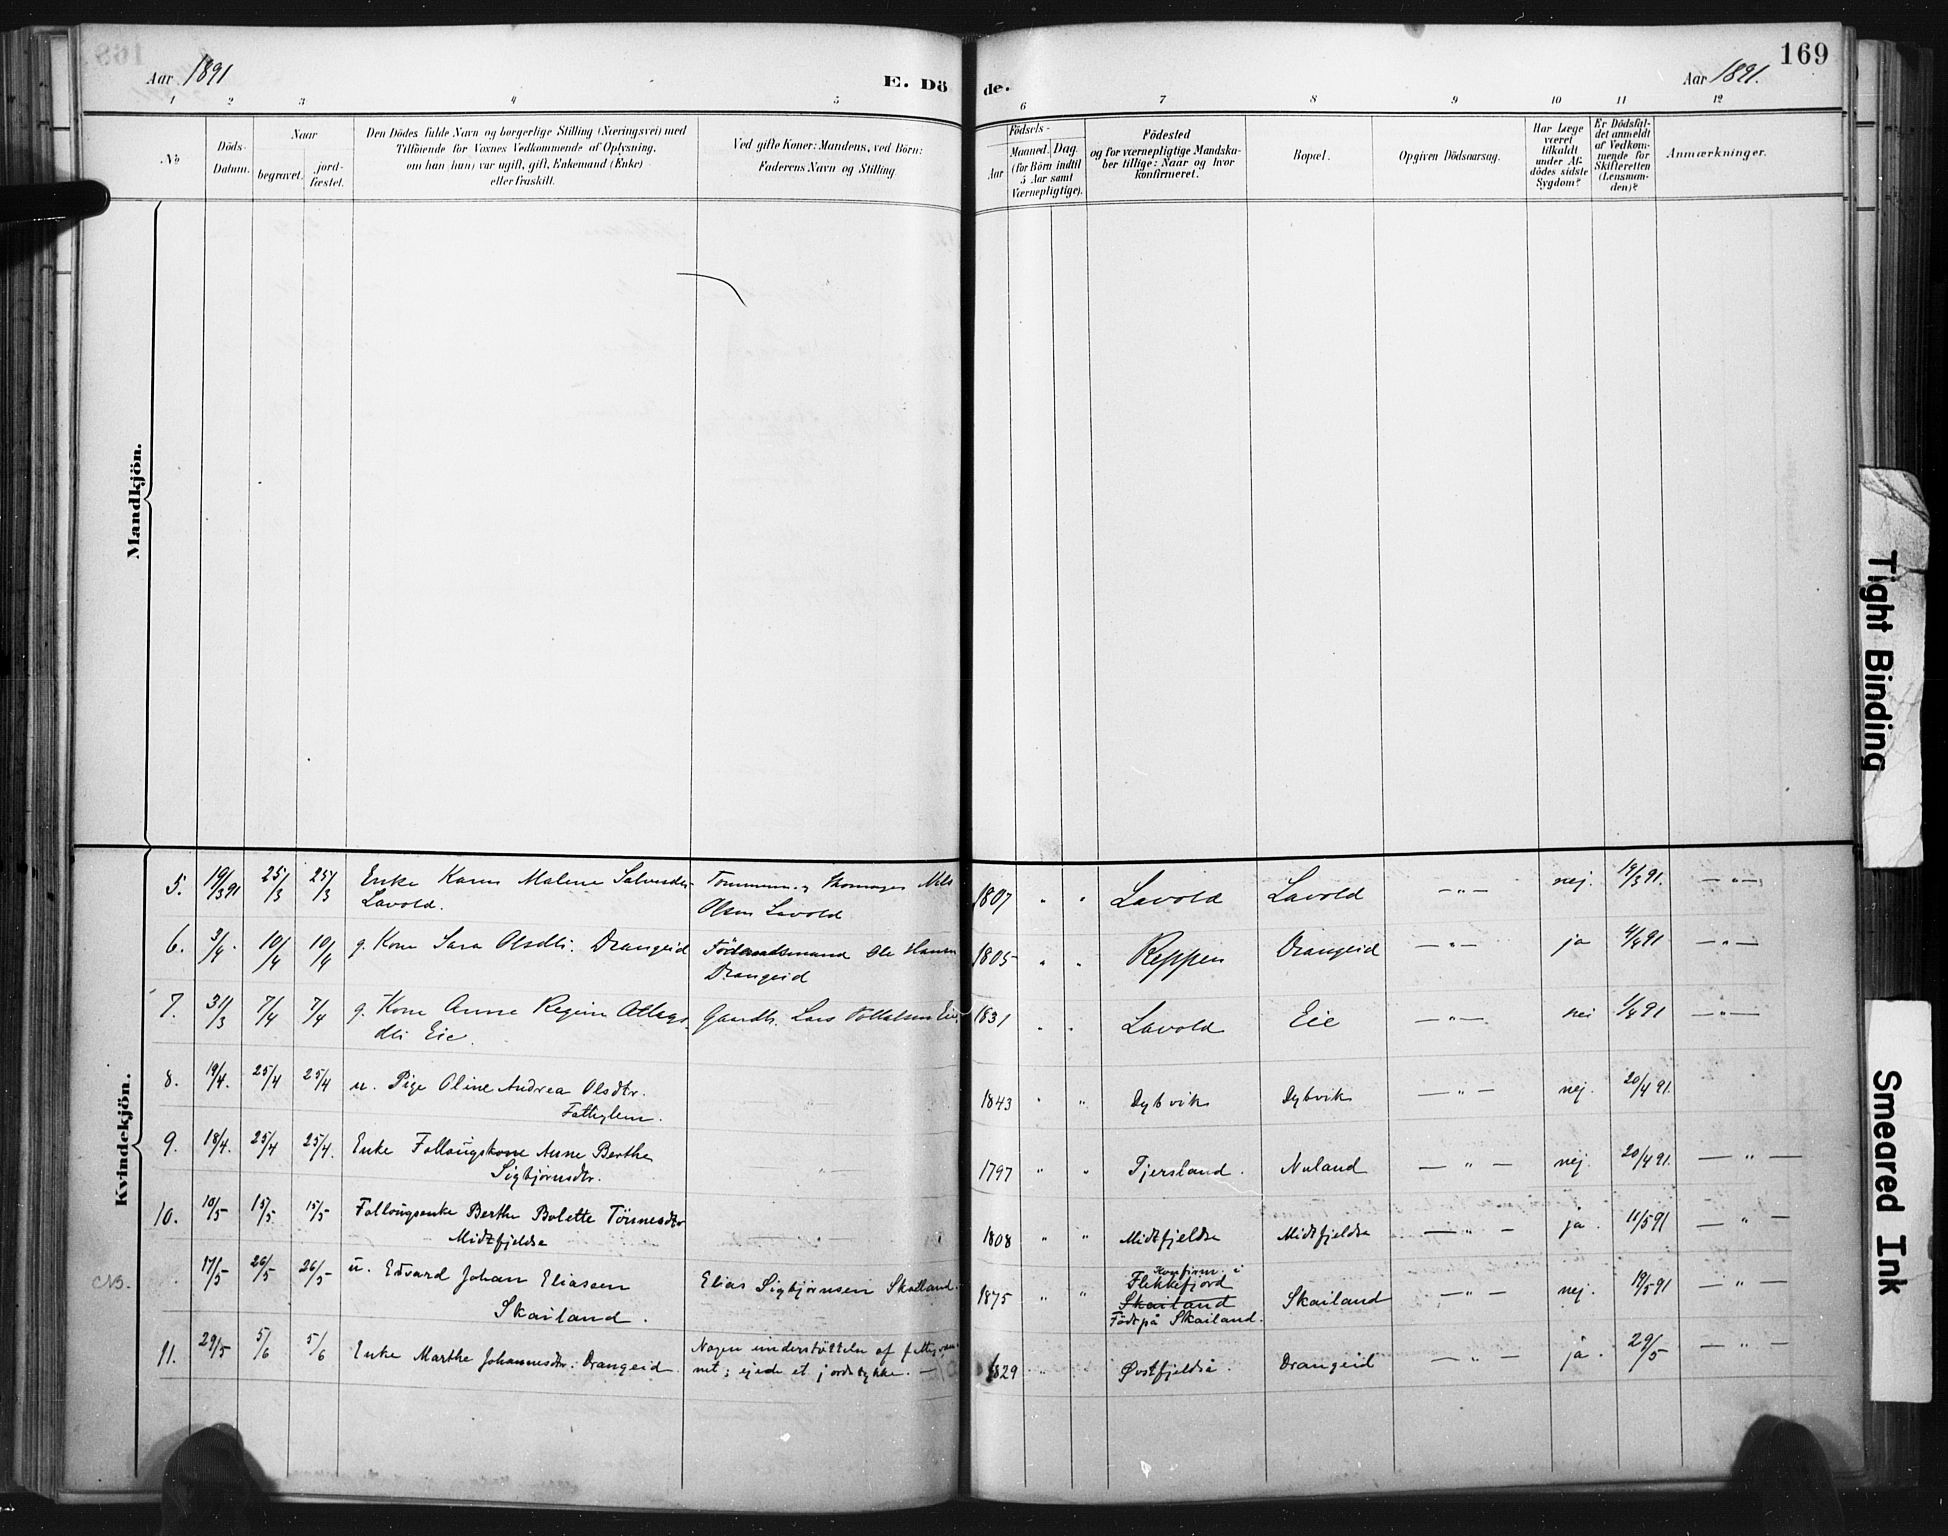 168
Aar 1891
E. Dö
de.
Aar 1891.
169
1 2 3 4 5 6 7 8 9 10 11 12
No
Döds-
Datum.
Naar
begravet.
jord-
fæstet.
Den Dödes fulde Navn og borgerlige Stilling (Næringsvei) med
Tilföiende for Voxnes Vedkommende af Oplysning,
om han (hun) var ugift, gift, Enkemand (Enke)
eller fraskilt.
Ved gifte Koner: Mandens, ved Börn:
Faderens Navn og Stilling.
Födsels-
Aar
Maaned. Dag.
(for Börn indtil
5 Aar samt
Værnepligtige).
Födested
og for værnepligtige Mandska-
ber tillige: Naar og hvor
konfirmeret.
Bopæl.
Opgiven Dödsaarsag.
Har Læge
været
tilkaldt
under Af-
dödes sidste
Sygdom?
Er Dödsfal-
det anmeldt
af Vedkom-
mende for
Skifteretten
(Lensman-
den)?
Anmærkninger.
Mandkjön.
Kvindekjön.
5. 19/3 91 25/3 25/3 Enke Karen Malene
Lavold.
Olsen Lavold
1807 " " Lavold Lavold — " — nej. 19/3 91. — " —
6. 3/4. 10/4 10/4 g. Kone Sara Olsdtr. Drangeid
Ole Hansen
Drangeid
1805 " " Reppen Drangeid — " — ja 4/4 91 — " —
7. 31/3 7/4 7/4 g. Kone Anne Regine Atlags
dtr Eie.
Gaardb. Lars Eie.
1831 " " Lavold Eie — " — nei 1/4 91 — " —
8. 19/4. 25/4 25/4 u. Pige Oline Andrea Olsdtr.
Fattiglem.
1843 " " Dybvik Dybvik — " — nej. 20/4 91.
9. 18/4. 25/4 25/4. Enke Follaugskone Anne Berthe
Sigbjørnsdtr.
1797 " " Tjersland. Nuland — " — nej. 20/4 91. — " —
10. 10/5 15/5 15/5 Follougsenke Berthe Bolette Tönnesdtr
Midtfjeldse
— " —
1808 " " Midtfjeldse Midtfjeldse — " — ja. 11/5 91 — " —
NB. 17/5 26/5 26/5 u. Edvard Johan Eliassen
Skailand.
Elias Sigbjørnsen Skailand.
1875 " "
Konfirm. i
Flekkefjord
Skailand
Född på Skailand.
Skailand — " — nej. 19/5 91 — " —
11. 29/5 5/6 5/6 Enke Marthe Johannesdtr. Drangeid.
Nogen understöttelse af fattigvæs-
net; ejede et jordstykke. —
1829 " " Østfjeldse. Drangeid — " — ja. 29/5 — " —
Tight Binding
Smeared Ink